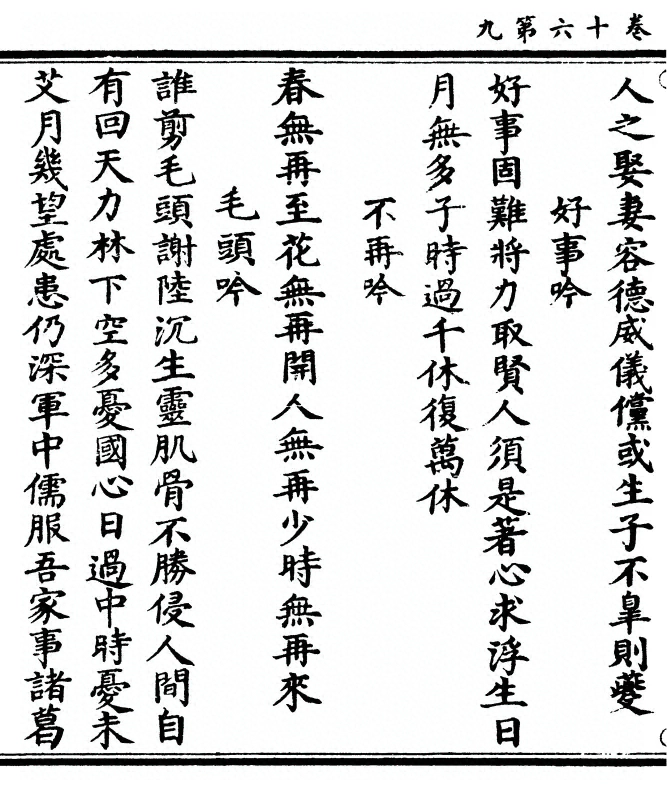 卷十六第九
人之娶妻容德威儀儻或生子不臯則夔
好事吟
好事固難將力取賢人須是著心求浮生日
月無多子時過千休復萬休
不再吟
春無再至花無再開人無再少時無再來
毛頭吟
誰剪毛頭謝陸沉生靈肌骨不勝侵人間自
有回天力林下空多憂國心日過中時憂未
艾月幾望處患仍深軍中儒服吾家事諸葛